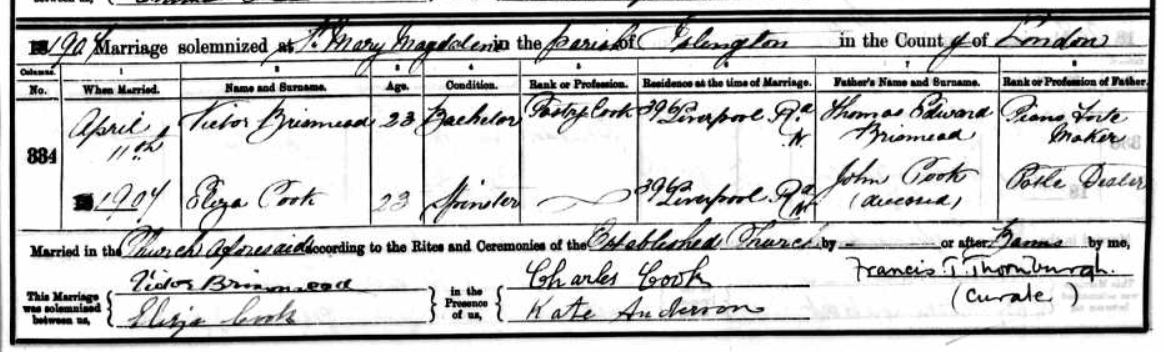 1907 Marriage solemnized at St. Mary Magdalene in the parish of Islington in the County of London
Columns. 1 2 3 4 5 6 7 8
No. When Married. Name and Surname. Age. Condition. Rank or Profession. Residence at the time of Marriage. Father's Name and Surname. Rank or Profession of Father.
April 11th Victor Brinmead 23 Bachelor Pastry Cook 396 Liverpool Rd N. Thomas Edward Brinmead Piano Forte Maker
884
1907 Eliza Cook 23 Spinster 396 Liverpool Rd N. John Cook (deceased) Dealer
Married in the Church aforesaid according to the Rites and Ceremonies of the Established Church by or after Banns by me,
This Marriage was solemnized between us, Victor Brinmead in the Presence of us, Charles Cook Francis T. Thornburgh.
Eliza Cook Kate Anderson (Curate)